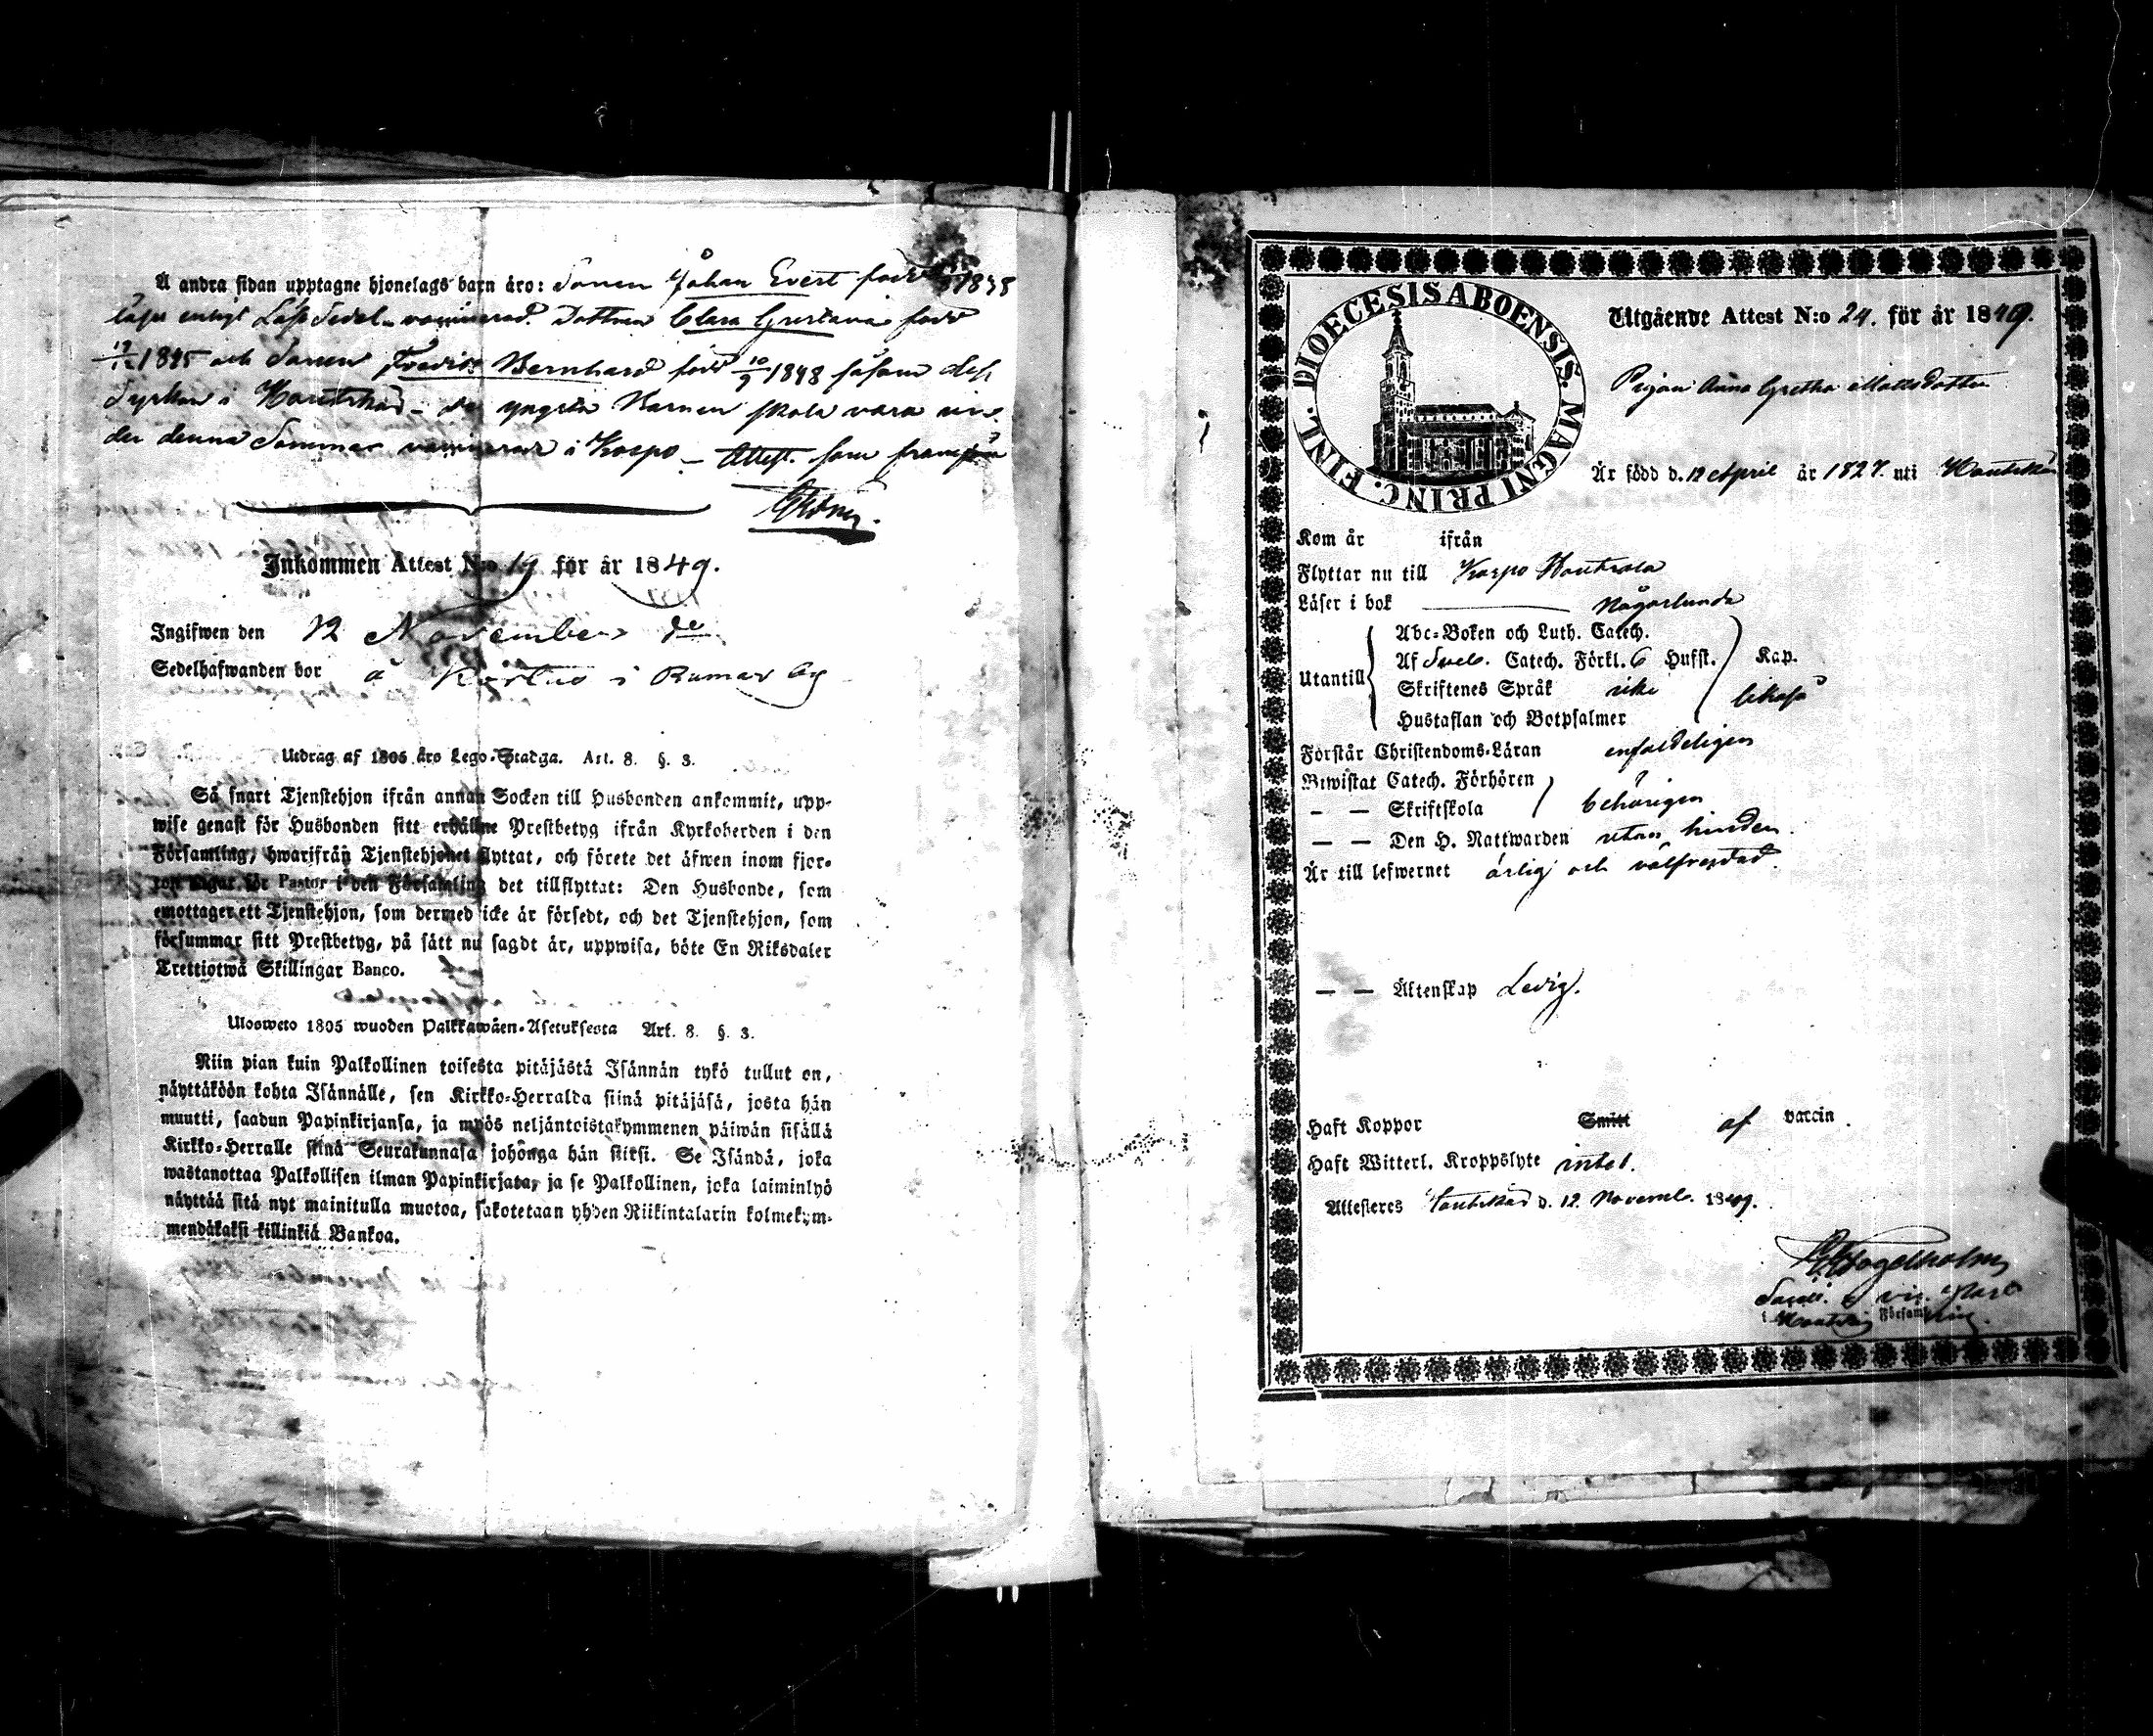 Å andra sidan upptagne hjonelags barn äro: Sonen Johan Evert född 1838
läser enligt Läse Sedel - vaccinerad. Dottren Clara Gustava född
1845 och Sonen Fredric Bernhard född 10/9 1848 såsom dess
Syskon i Houtskär - de yngsta Barnen skola vara un-
der denna Sommar vaccinerade i Korpo - Attest. som framgår
Inkommen Attest N:o 19 för år 1849.
Ingifwen den 12 November
Sedelhafwanden bor å i Rumar by
Utdrag af 1805 års Lego-Stadga. Art. 8. §. 3.
Så snart Tjenstehjon ifrån annan Socken till Husbonden ankommit, upp-
wise genast för Husbonden sitt erhållne Prestbetyg ifrån Kyrkoherden i den
Församling, hwarifrån Tjenstehjonet flyttat, och förete det äfwen inom fjor-
ton dagar för Pastor i den Församling det tillflyttat: Den Husbonde, som
emottager ett Tjenstehjon, som dermed icke är försedt, och det Tjenstehjon, som
försummar sitt Prestbetyg, på sätt nu sagdt är, uppwisa, böte En Riksdaler
Trettiotwå Skillingar Banco.
Ulosweto 1805 wuoden Palkkawäen-Asetuksesta Art. 8. §. 3.
Niin pian kuin Palkollinen toisesta pitäjästä Isännän tykö tullut on,
näyttäköön kohta Isännälle, sen Kirkko-Herralda siinä pitäjäsä, josta hän
muutti, saadun Papinkirjansa, ja myös neljäntoistakymmenen päiwän sisällä
Kirkko-Herralle siinä Seurakunnasa johonga hän siirsi. Se Isändä, joka
wastanottaa Palkollisen ilman Papinkirjata, ja se Palkollinen, joka laiminlyö
näyttää sitä nyt mainitulla muotoa, sakotetaan yhden Riikintalarin kolmekym-
mendäkaksi killinkiä Bankoa.
DIOECESIS ABOENSIS. MAGNI PRINC. FINL.
Utgående Attest N:o 24. för år 1849.
Pigan Anna Gretha Mattsdotter
Är född d. 12 April år 1827. uti Houtskär
Kom år ifrån
Flyttar nu till Korpo
Läser i bok någorlunda
Utantill
Abc-Boken och Luth. Catech.
Af Sveb. Catech. Förkl. 6 Hufst. Kap.
Skriftenes Språk icke likaså
Hustaflan och Botpsalmer
Förstår Christendoms-Läran enfaldeligen
Biwistat Catech. Förhören
— — Skriftskola behörigen
— — Den H. Nattwarden utan hinder.
Är till lefwernet ärlig och välfrejdad.
— — Äktenskap Ledig.
Haft Koppor Smitt af vaccin.
Haft Witterl. Kroppslyte intet.
Attesteras Houtskär d. 12. Novemb. 1849.
Fogelholm
i Houtskär Församling.